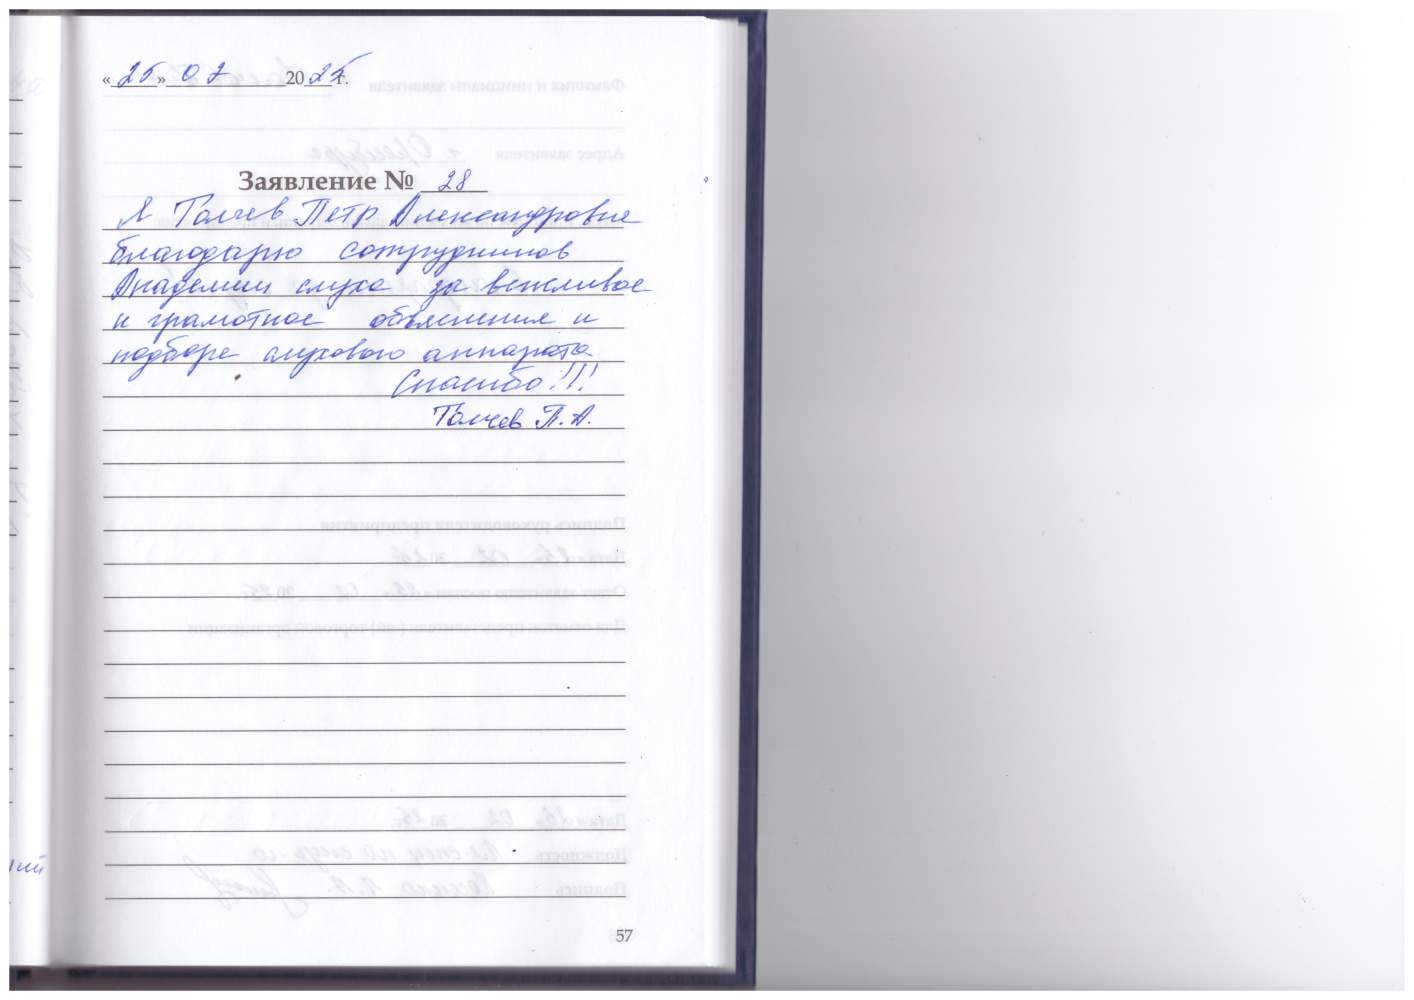 «25» 02 2025 г.
Заявление № 28
Я Толчев Петр Александрович
благодарю сотрудников
Академии слуха за вежливое
и грамотное объяснения и
подборе слухового аппарата
Спасибо!!!
Толчев П.А.
57